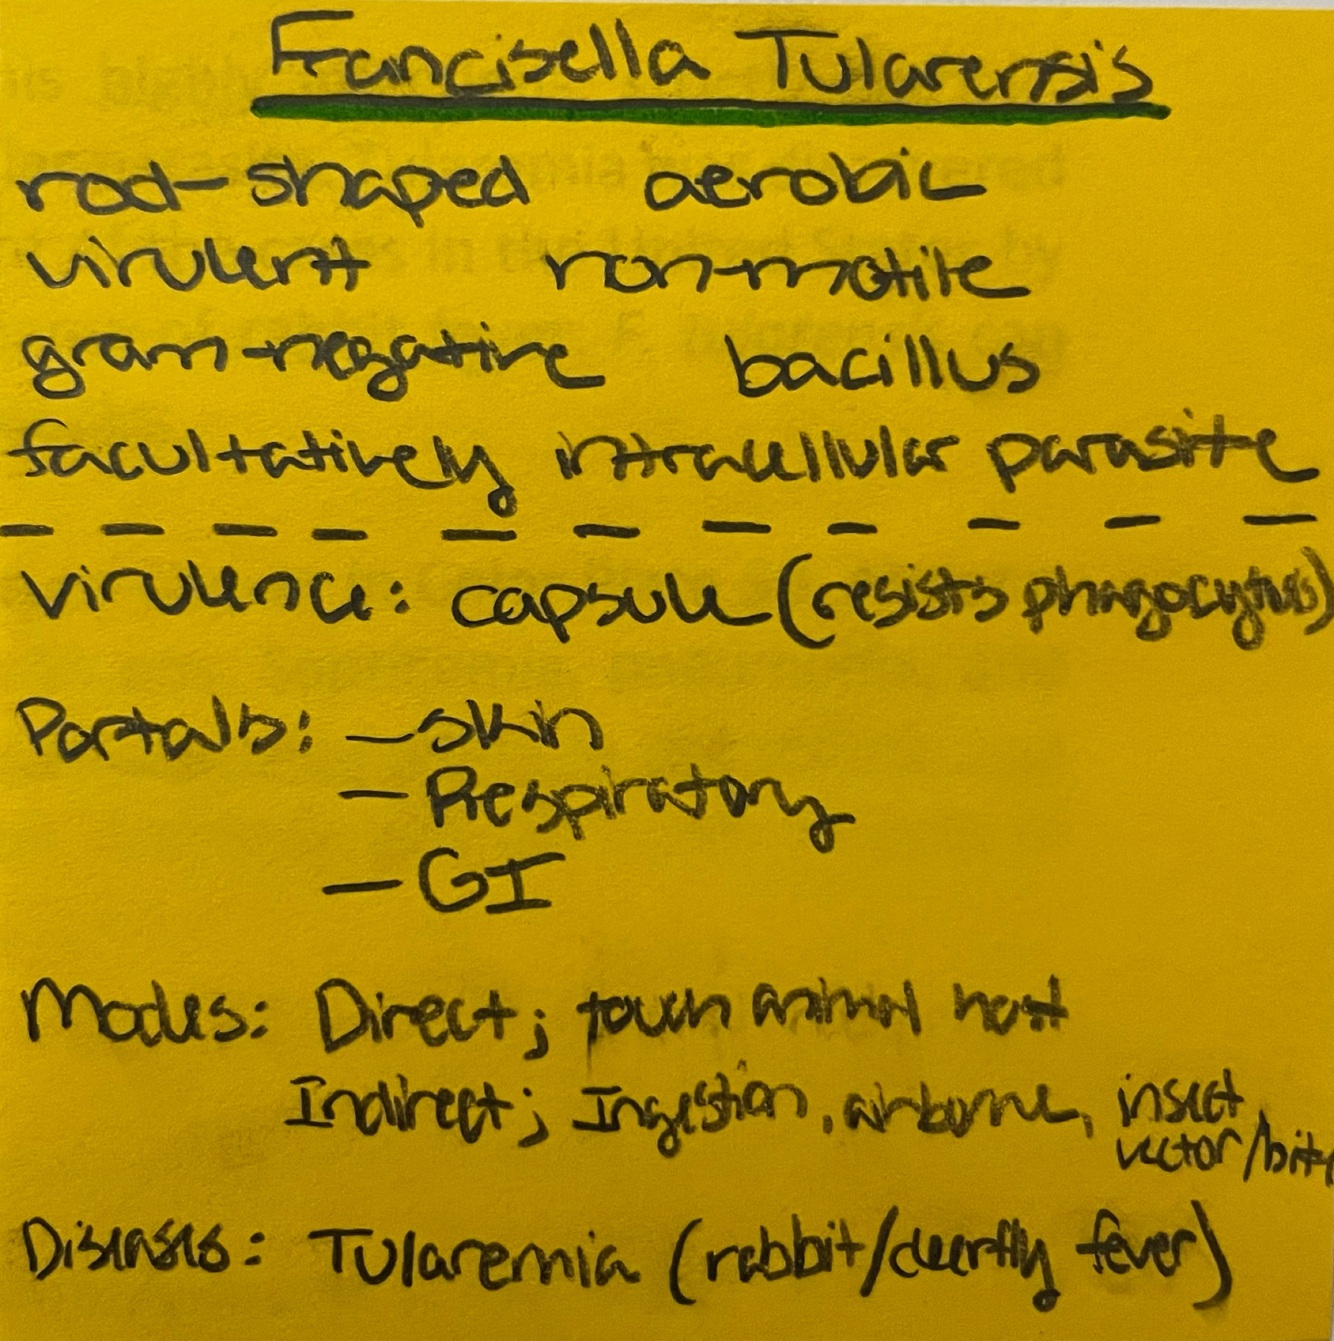 Francisella Tularensis
rod-shaped aerobic
virulent non-motile
gram-negative bacillus
facultatively intracellular parasite
virulence: capsule (resists phagocytosis)
Portals: - skin
- Respiratory
- GI
Modes: Direct; touch animal host
Indirect; Ingestion, airborne, insect
vector/bite
Diseases: Tularemia (rabbit/deerfly fever)